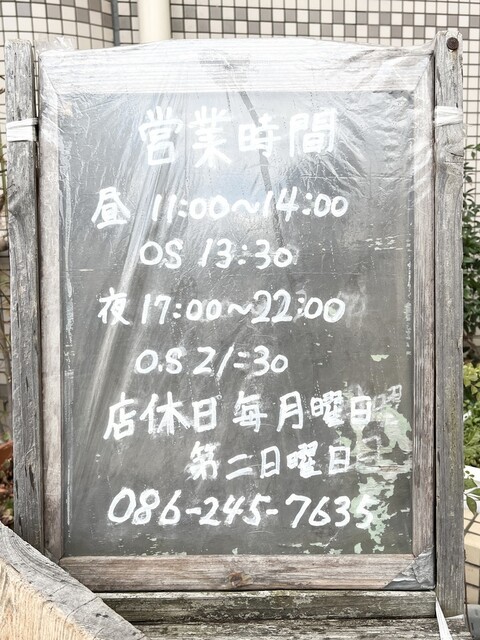 営業時間
昼 11:00～14:00
O.S 13:30
夜 17:00～22:00
O.S 21:30
店休日 毎月曜日
第二日曜日
086-245-7635